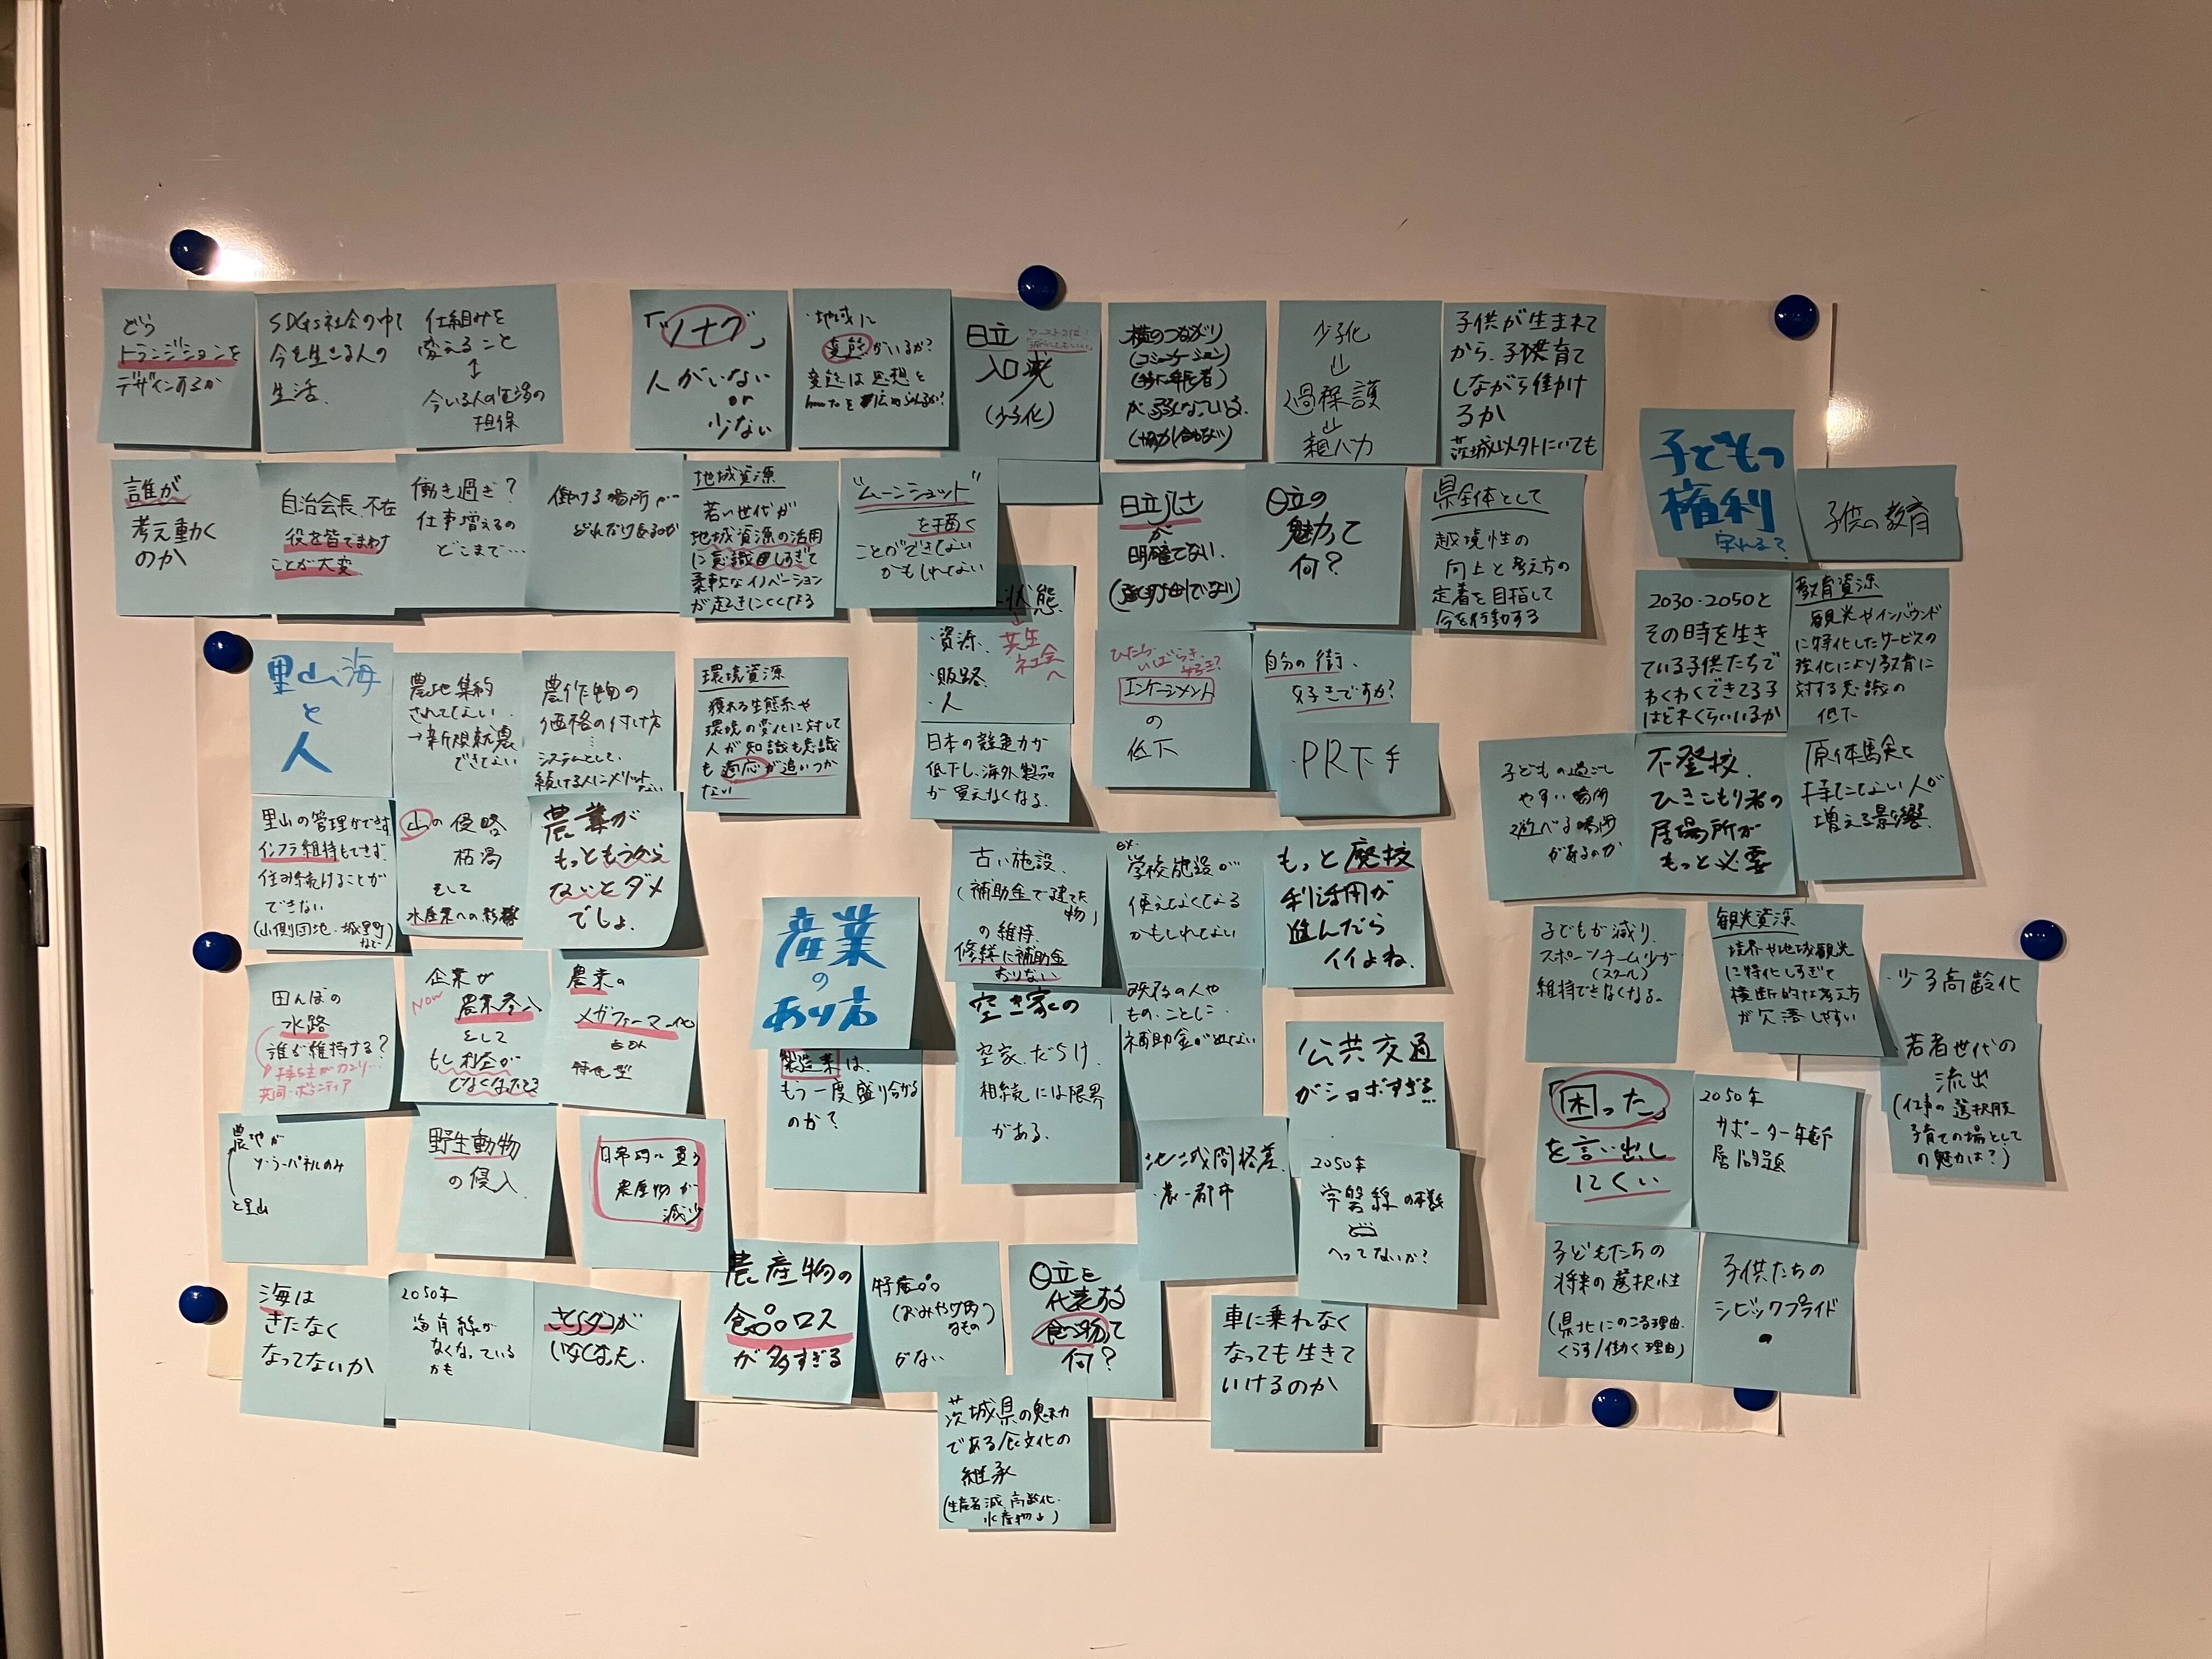 どう
トランジションを
デザインするか
SDGs社会の中で
今を生きる人の
生活.
仕組みを
変えること
↕
今いる人の生活の
担保
「ツナグ」
人がいない
or
少ない
・地域に
変態がいるか?
変態は思想と
日立
人口減
(少子化)
横のつながり
(コミュニケーション)
(特に年長者)
が弱くなっている.
(協力し合わない)
少子化
⇓
過保護
⇓
親バカ
子供が生まれて
から、子供育て
しながら働け
るか
茨城以外にいても
誰が
考え動く
のか
自治会長、不在
役を皆でまわす
ことが大変.
働き過ぎ?
仕事増えるの
どこまで…
働ける場所が
どれだけあるか
地域資源
若い世代が
地域資源の活用
に意識しすぎて
柔軟なイノベーション
が起きにくくなる
"ムーンショット"
を描く
ことができてない
かもしれない
日立らしさ
が
明確でない.
日立の
魅力って
何?
県全体として
越境性の
向上と考え方の
定着を目指して
今を行動する
子どもの
権利
守れる?
子供の教育
2030・2050と
その時を生き
ている子供たちで
わくわくできてる子
はどれくらいいるか
教育資源
観光やインバウンド
に特化したサービスの
強化により教育に
対する意識の
低下
里山海
と
人
農地集約
されてない.
→新規就農
できない
農作物の
価格の付け方
システムとして、
続ける人にメリットない
環境資源
獲れる生態系や
環境の変化に対して
人が知識も意識
も適応が追いつか
ない
状態
・資源.
・販路.
・人
共生
社会へ
ひたち、
いばらき、
好き?
エンゲージメント
の
低下
自分の街、
好きですか?
・PR下手
日本の製造力が
低下し、海外製品
が買えなくなる.
子どもの過ごし
やすい場所
遊べる場所
があるのか
不登校、
ひきこもり者の
居場所が
もっと必要
原体験を
持てない人が
増える影響.
里山の管理ができず
インフラ維持もできず
住み続けることが
できない
(山側団地・城里町など)
山の侵略
枯渇
そして
水産業への影響
農業が
もっともうから
ないとダメ
でしょ.
産業
の
あり方
古い施設
(補助金で建てた物)
の維持、
修繕に補助金
おりない
ex.
学校施設が
使えなくなる
かもしれない
もっと廃校
利活用が
進んだら
イイよね.
子どもが減り、
スポーツチーム少が
(スクール)
維持できなくなる。
観光資源
境界や地域観光
に特化しすぎて
横断的な考え方
が欠落しやすい
・少子高齢化
若者世代の
流出
(仕事の選択肢
子育ての場として
の魅力は?)
田んぼの
水路
誰が維持する?
共同・ボランティア
企業が
Now
農業参入
をして
もし利益が
でなくなったとき
農業の
メガファーマー化
特色型
製造業は、
もう一度盛り上がる
のか?
空き家の
空家だらけ.
相続には限界
がある.
既存の人や
もの・ことに
補助金が出ない
公共交通
がショボすぎる…
「困った」
を言い出し
にくい
2050年
サポーター年齢
層問題
農地が
ソーラーパネルのみ
と里山
野生動物
の侵入
日常的に買う
農産物が
減少
地域間格差.
・農-都市
2050年
常磐線の本数
へってないか?
子どもたちの
将来の選択性
(県北にのこる理由.
くらす/働く理由)
子供たちの
シビックプライド
の
海は
きたなく
なってないか
2050年
海岸線が
なくなっている
かも
さとうダコが
いなくなった.
農産物の
食品ロス
が多すぎる
特産品
(おみやげ的なもの)
がない
日立を
代表する
食べ物って
何?
車に乗れなく
なっても生きて
いけるのか
茨城県の魅力
である食文化の
継承
(生産者減、高齢化.
水産物↓)